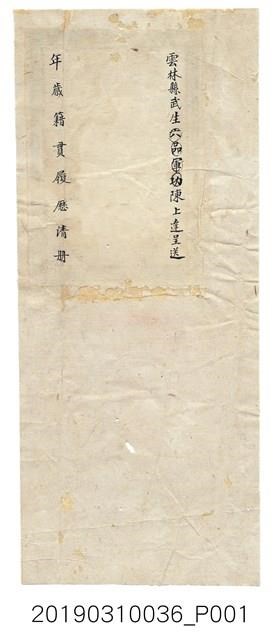 雲林縣武生六品軍功陳上達呈送
年歲籍貫履歷清册
20190310036_P001